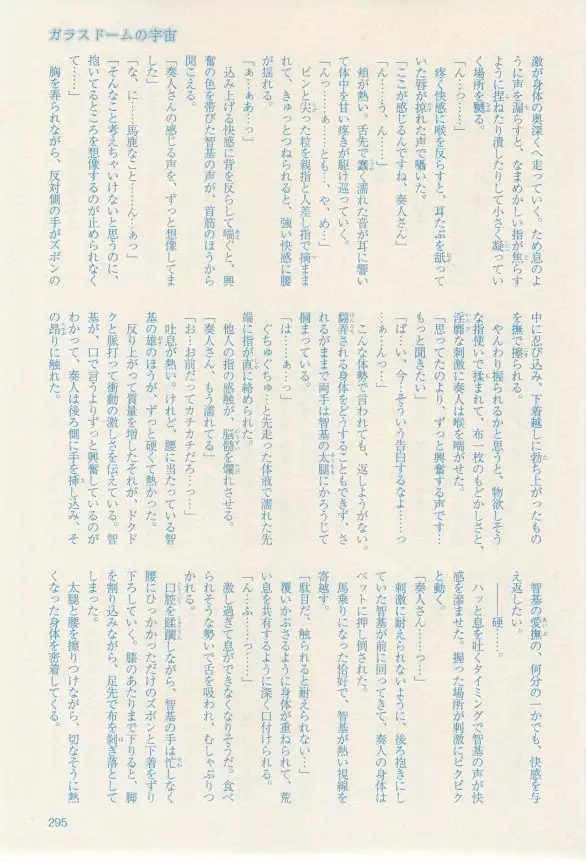 ガラスドームの宇宙
激が身体の奥深くへ走っていく。ため息のよ
うに声を漏らすと、なまめかしい指が焦らす
ように捏ねたり潰したりして小さく凝ってい
く場所を嬲る。
「ん…っ……っ」
疼く快感に喉を反らすと、耳たぶを舐って
いた唇が掠れた声で囁いた。
「ここが感じるんですね、奏人さん」
「ん……う、ん……」
頬が熱い。舌先で蠢く濡れた音が耳に響い
て体中を甘い疼きが駆け巡っていく。
「んっ……ぁ……とも…、や、め…」
ピンと尖った粒を親指と人差し指で摘まま
れて、きゅっとつねられると、強い快感に腰
が揺れる。
「ぁ…ぁあ…っ」
込み上げる快感に背を反らして喘ぐと、興
奮の色を帯びた智基の声が、首筋のほうから
聞こえる。
「奏人さんの感じる声を、ずっと想像してま
した」
「な、に……馬鹿なこと……ん…ぁっ」
「そんなこと考えちゃいけないと思うのに、
抱いてるところを想像するのが止められなく
て……」
胸を弄られながら、反対側の手がズボンの
中に忍び込み、下着越しに勃ち上がったもの
を撫で擦られる。
やんわり握られるかと思うと、物欲しそう
な指使いで揉まれて、布一枚のもどかしさと、
淫靡な刺激に奏人は喉を喘がせた。
「思ってたのより、ずっと興奮する声です…
もっと聞きたい」
「ば…い、今…そういう告白するなよ……っ
…ぁ…んっ…」
こんな体勢で言われても、返しようがない。
翻弄される身体をどうすることもできず、さ
れるがままで両手は智基の太腿にかろうじて
掴まっている。
「は……ぁ…っ」
ぐちゅぐちゅ…と先走った体液で濡れた先
端に指が直に絡められた。
他人の指の感触が、脳髄を爛れさせる。
「奏人さん、もう濡れてる」
「お…お前だってカチカチだろ…っ…」
吐息が熱い。けれど、腰に当たっている智
基の雄のほうが、ずっと硬くて熱かった。
反り上がって質量を増したそれが、ドクド
クと脈打って衝動の激しさを伝えている。智
基が、口で言うよりずっと興奮しているのが
わかって、奏人は後ろ側に手を挿し込み、そ
の昂りに触れた。
智基の愛撫の、何分の一かでも、快感を与
え返したい。
――硬……。
ハッと息を吐くタイミングで智基の声が快
感を滲ませた。握った場所が刺激にビクビク
と動く。
「奏人さん……っ…」
刺激に耐えられないように、後ろ抱きにし
ていた智基が前に回ってきて、奏人の身体は
ベットに押し倒された。
馬乗りになった恰好で、智基が熱い視線を
寄越す。
「駄目だ、触られると耐えられない…」
覆いかぶさるように身体が重ねられて、荒
い息を共有するように深く口付けられる。
「ん…ふ……っ……」
激し過ぎて息ができなくなりそうだ。食べ
られそうな勢いで舌を吸われ、むしゃぶりつ
かれる。
口腔を蹂躙しながら、智基の手は忙しなく
腰にひっかかっただけのズボンと下着をずり
下ろしていく。膝のあたりまで下りると、脚
を割り込みながら、足先で布を剥ぎ落として
しまった。
太腿と腰を擦りつけながら、切なそうに熱
くなった身体を密着してくる。
295